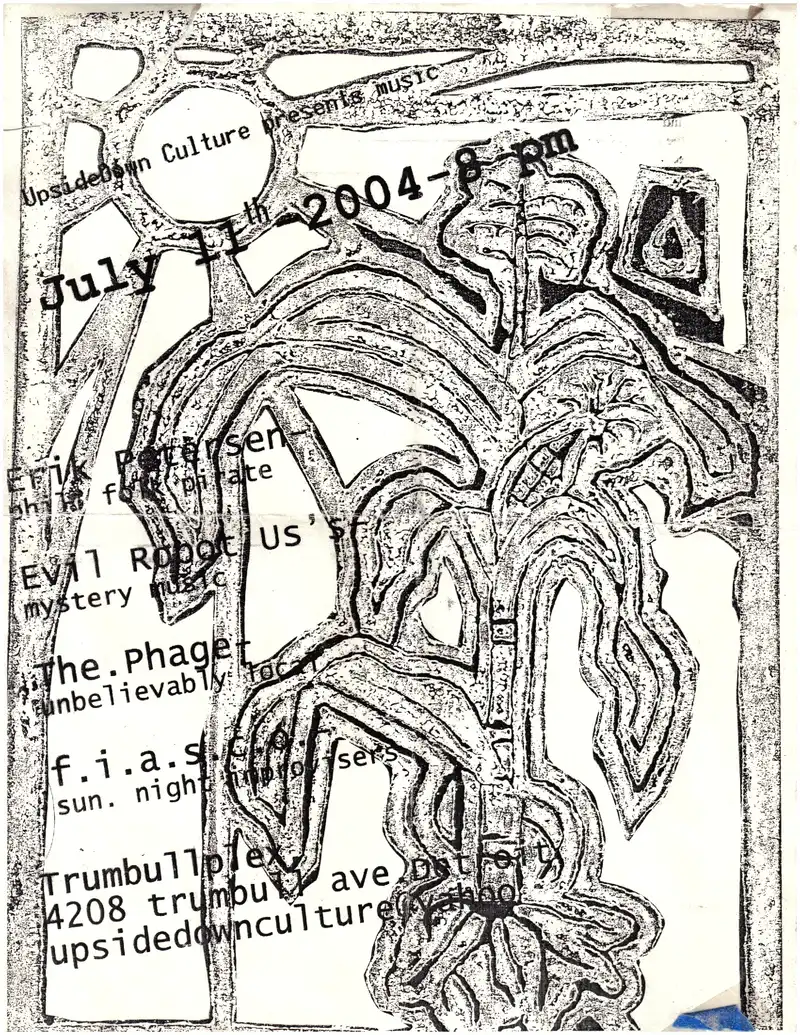 UpsideDown Culture presents music
July 11th -2004-8 pm
Erik Petersen-
phila folk pirate
Evil Robot Us's-
mystery music
The.Phage-
unbelievably local
f.i.a.s.c.o.-
sun. night improvisers
Trumbullplex,
4208 trumbull ave, Detroit,
upsidedownculture@yahoo